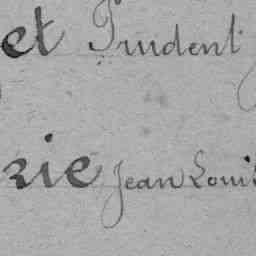 et Prudent
rie Jean Louis